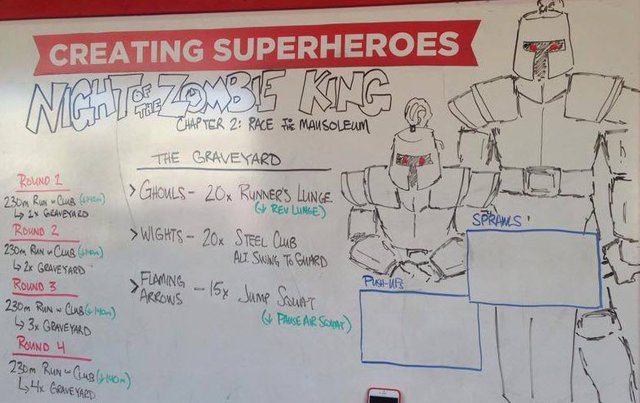 CREATING SUPERHEROES
NIGHT OF THE ZOMBIE KING
CHAPTER 2: RACE TO THE MAUSOLEUM
THE GRAVEYARD
ROUND 1
230m RUN w CLUB (↓140m)
↳ 1x GRAVEYARD
ROUND 2
230m RUN w CLUB (↓140m)
↳ 2x GRAVEYARD
ROUND 3
230m RUN w CLUB (↓140m)
↳ 3x GRAVEYARD
ROUND 4
230m RUN w CLUB (↓140m)
↳ 4x GRAVEYARD
> GHOULS - 20x RUNNER'S LUNGE
(↓ REV LUNGE)
> WIGHTS - 20x STEEL CLUB
ALT SWING TO GUARD
> FLAMING ARROWS - 15x JUMP SQUAT
(↓ PAUSE AIR SQUAT)
PUSH-UPS
SPRAWLS